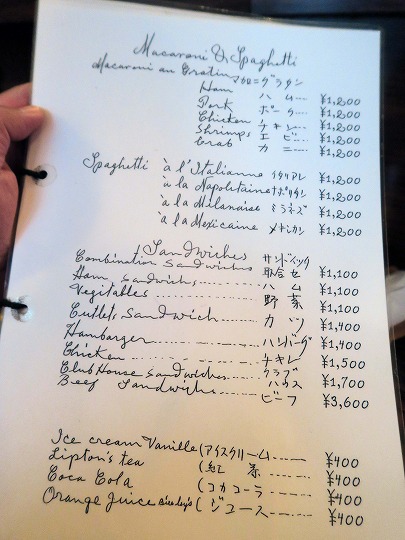 Macaroni & Spaghetti
Macaroni au Gratin マカロニグラタン
Ham ハム ¥1,200
Pork ポーク ¥1,200
Chicken チキン ¥1,200
Shrimps エビ ¥1,200
Crab カニ ¥1,200
Spaghetti à l'Italianne イタリアレ ¥1,200
à la Napoletaine ナポリタン ¥1,200
à la Milanaise ミラネズ ¥1,200
à la Mexicaine メキシカン ¥1,200
Sandwiches サンドイッチ
Combination Sandwiches 取合せ ¥1,100
Ham Sandwiches ハム ¥1,100
Vegitables 野菜 ¥1,100
Cutlets Sandwich カツ ¥1,400
Hambarger ハンバーグ ¥1,400
Chicken チキン ¥1,500
Club House Sandwiches クラブハウス ¥1,700
Beef Sandwichs ビーフ ¥3,600
Ice cream Vanille (アイスクリーム ¥400
Lipton's tea (紅茶 ¥400
Coca Cola (コカコーラ ¥400
Orange Juice (ジュース ¥400